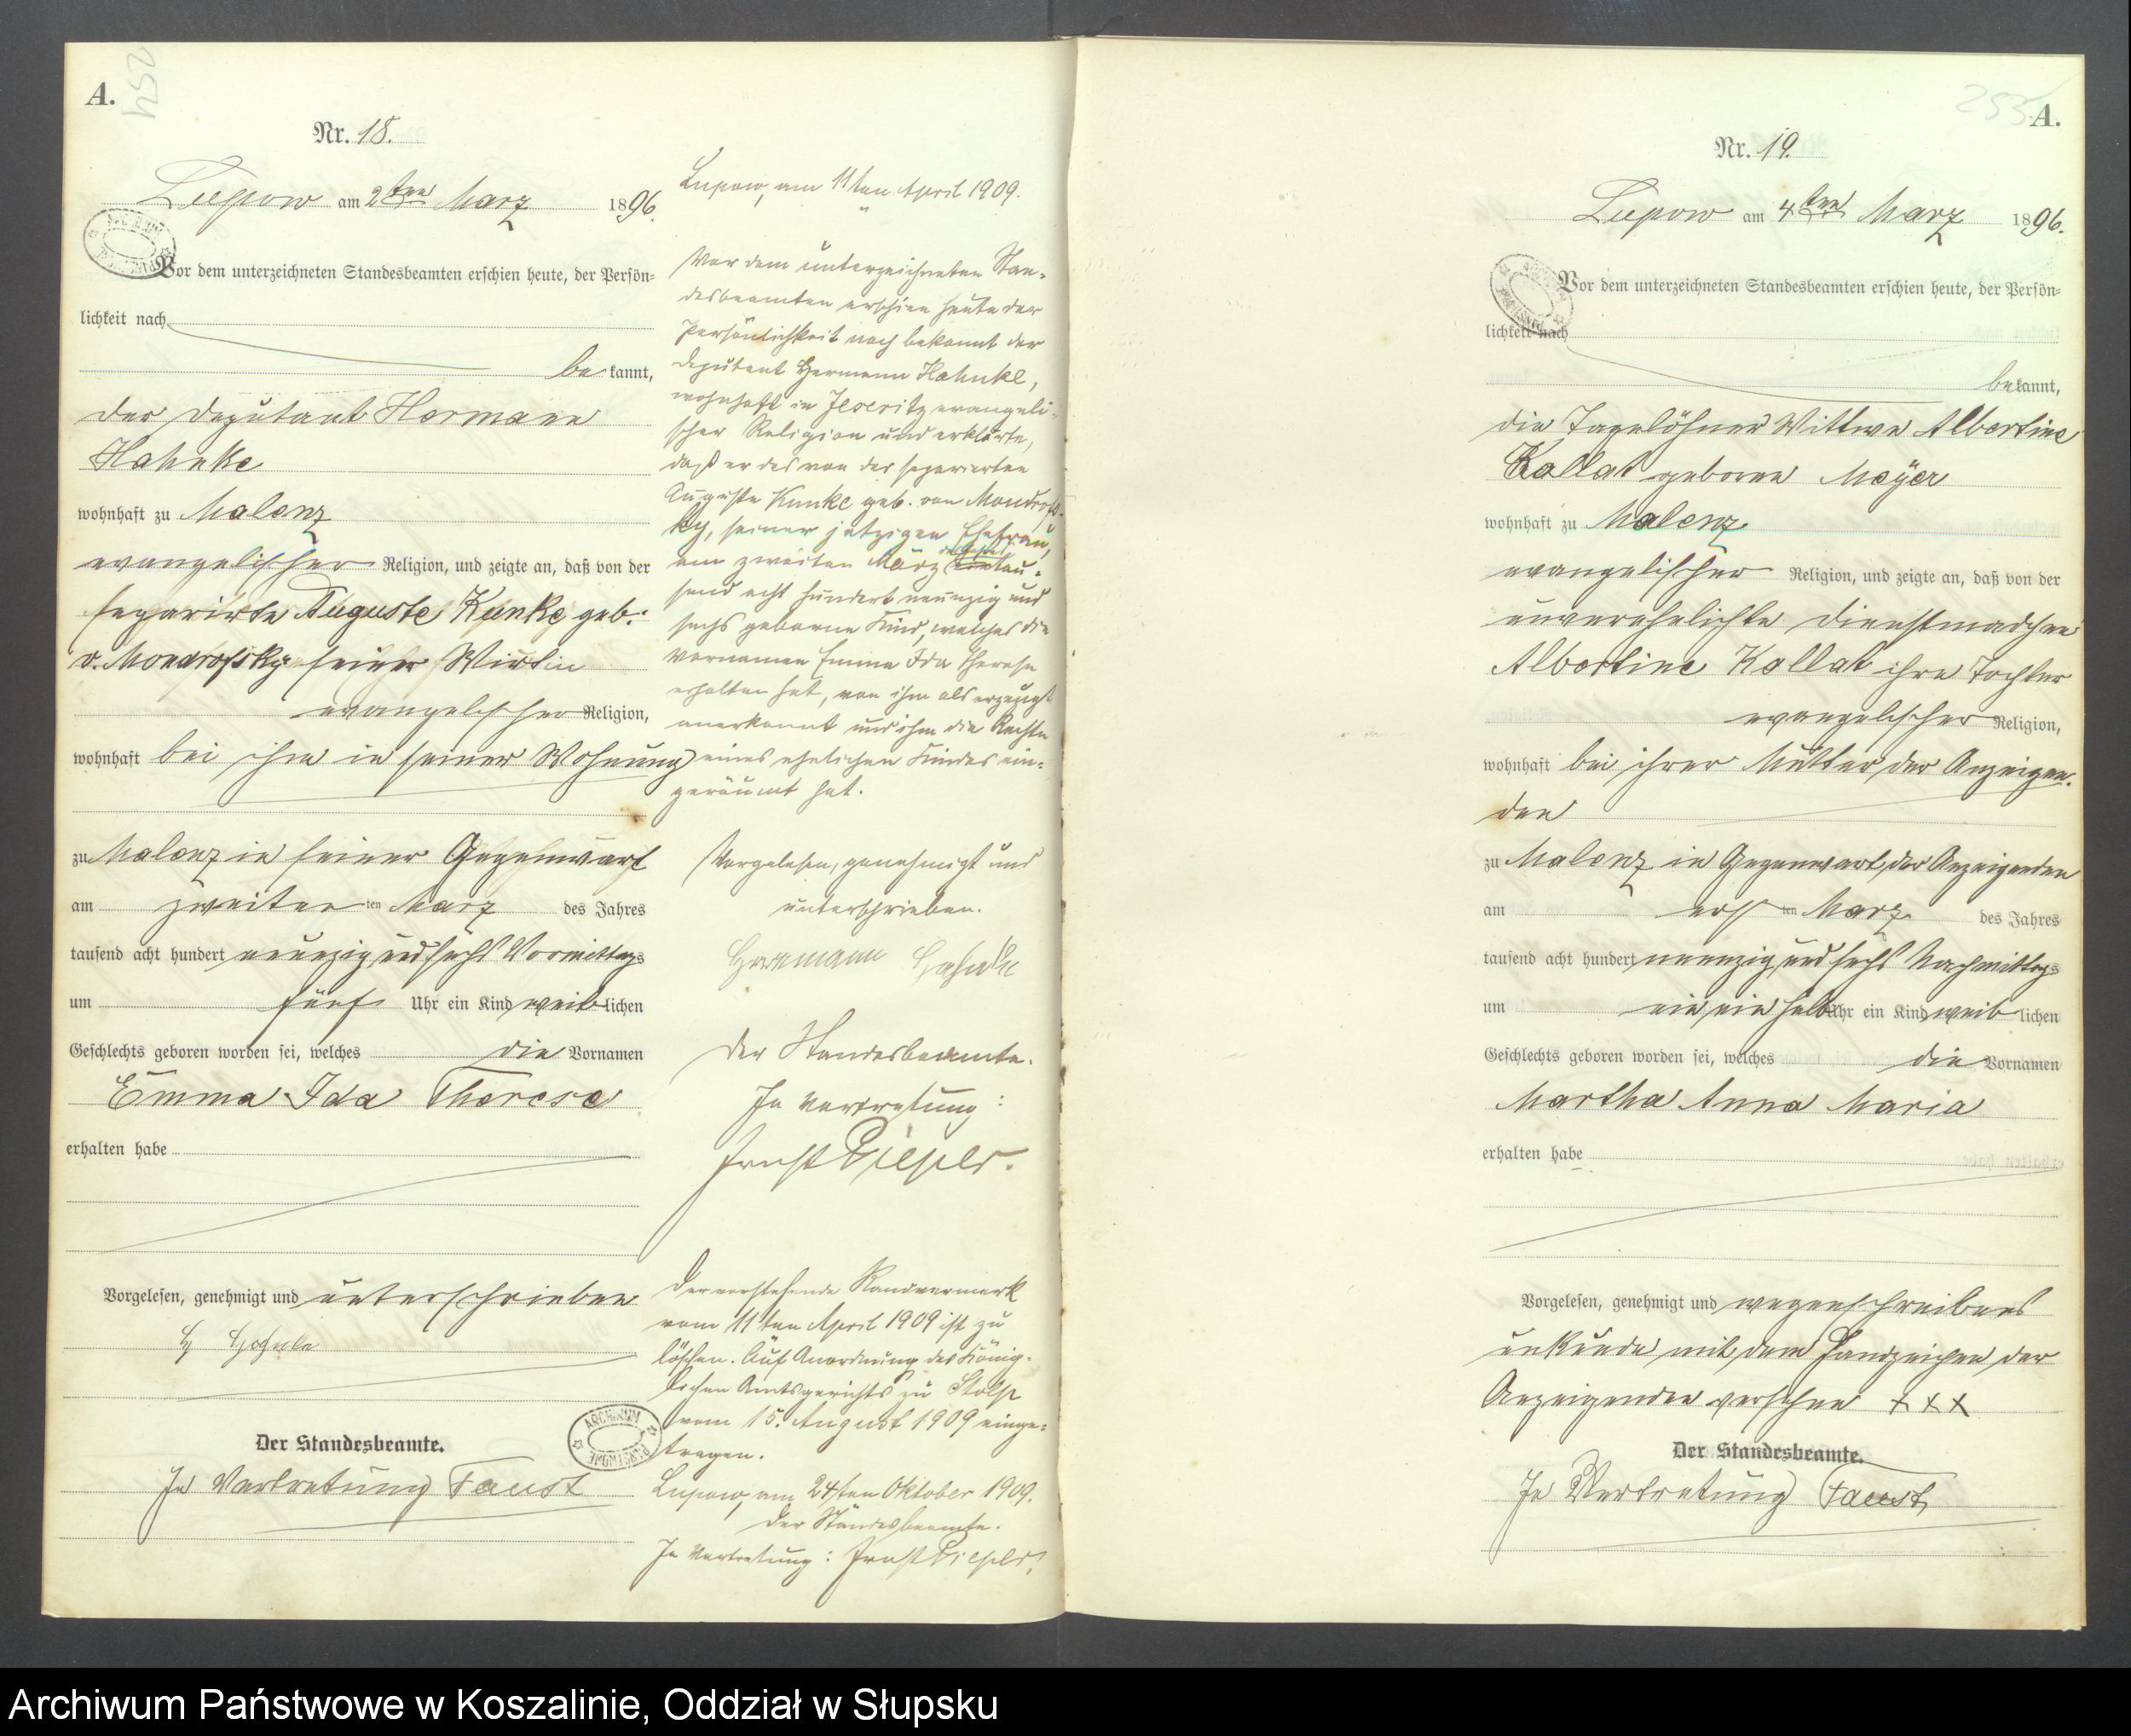 A.
254
Nr. 18.
Lupow am 2ten März 1896.
Vor dem unterzeichneten Standesbeamten erschien heute, der Persön=
lichkeit nach
bekannt,
der Deputant Hermann
Hahnke
wohnhaft zu Malenz
evangelischer Religion, und zeigte an, daß von der
separirte Auguste Kunke geb.
v. Mondrofsky seiner Wirtin
evangelischer Religion,
wohnhaft bei ihm in seiner Wohnung
zu Malenz in seiner Gegenwart
am zweiten ten März des Jahres
tausend acht hundert neunzig und sechs Vormittags
um fünf Uhr ein Kind weiblichen
Geschlechts geboren worden sei, welches die Vornamen
Emma Ida Therese
erhalten habe
Vorgelesen, genehmigt und unterschrieben
H
Der Standesbeamte.
In Vertretung Faust
Lupow, am 11ten April 1909.
Vor dem unterzeichneten Stan-
desbeamten erschien heute der
Persönlichkeit nach bekannt der
Deputant Hermann Hahnke,
wohnhaft in Jeseritz evangeli-
scher Religion und erklärte,
daß er das von der separierten
Auguste Kunke geb. von Mondrofs-
ky, seiner jetzigen Ehefrau,
am zweiten März eintau-
send acht hundert neunzig und
sechs geborene Kind, welches die
Vornamen Emma Ida Therese
erhalten hat, von ihm als erzeugt
anerkannt und ihm die Rechte
eines ehelichen Kindes ein-
geräumt hat.
Vorgelesen, genehmigt und
unterschrieben.
Hermann Hahnke
Der Standesbeamte.
In Vertretung:
Ernst
Der vorstehende Randvermerk
vom 11ten April 1909 ist zu
löschen. Auf Anordnung des König-
lichen Amtsgerichts zu Stolp
vom 15. August 1909 einge-
tragen.
Lupow, am 24ten Oktober 1909.
Der Standesbeamte.
In Vertretung: Ernst
255
A.
Nr. 19.
Lupow am 4ten März 1896.
Vor dem unterzeichneten Standesbeamten erschien heute, der Persön=
lichkeit nach
bekannt,
die Tagelöhner Wittwe Albertine
Kollat geborene Meyer
wohnhaft zu Malenz
evangelischer Religion, und zeigte an, daß von der
unverehelichte Dienstmädchen
Albertine Kollat ihre Tochter
evangelischer Religion,
wohnhaft bei ihrer Mutter der Anzeigen-
den
zu Malenz in Gegenwart der Anzeigenden
am ersten März des Jahres
tausend acht hundert neunzig und sechs Nachmittags
um ein ein halb Uhr ein Kind weiblichen
Geschlechts geboren worden sei, welches die Vornamen
Martha Anna Maria
erhalten habe
Vorgelesen, genehmigt und wegen schreibens
unkunde mit dem Handzeichen der
Anzeigenden versehen + + +
Der Standesbeamte.
In Vertretung Faust
Archiwum Państwowe w Koszalinie, Oddział w Słupsku